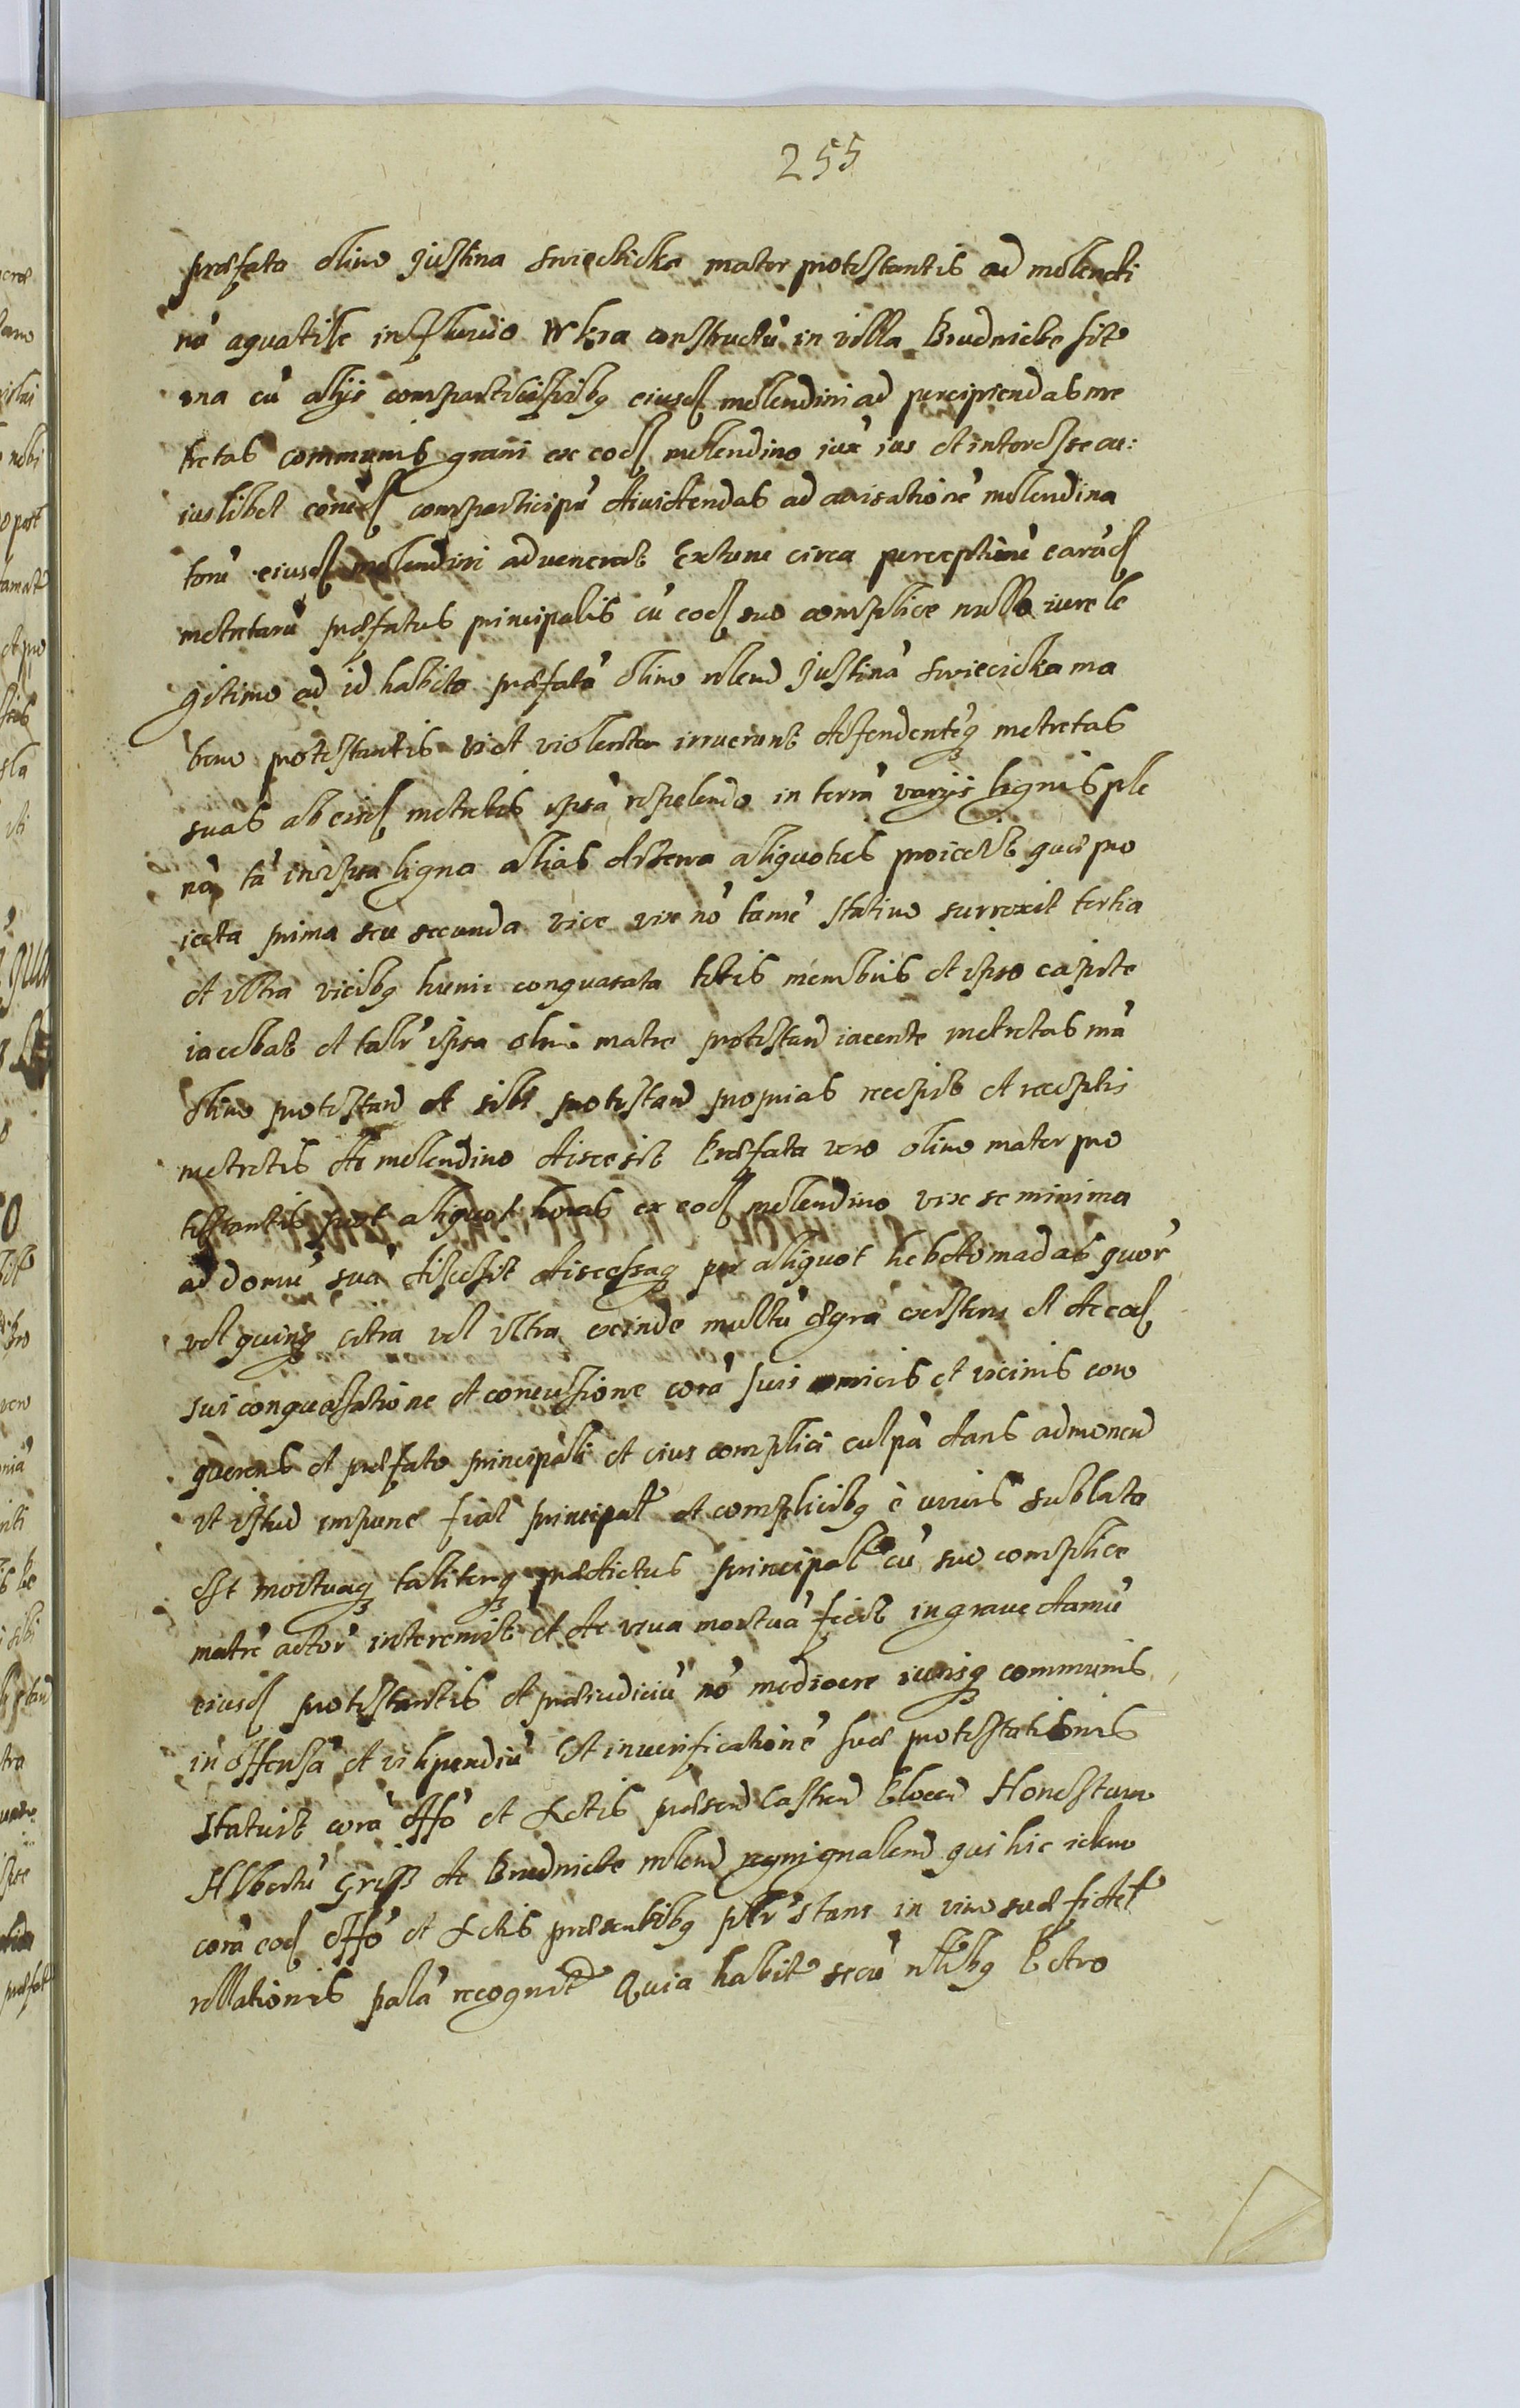 255
præfata olim Justina Swieciczka mater protestantis ad molendi
nũ aquatile in fluvio Wkra constructũ in villa Brudnicze sit
ma cũ alijs comparticipibq eiusd molendini ad percipiendas me
tretas communis grani ex eod molendino iux ius et interesse cu:
iuslibet eoruẽd comparticipũ dividendas ad avisationẽ molendina
toris eiusd molendini advenerat Extunc circa perceptionẽ earũd
metretarũ præfatus principalis cũ eod suo complice nullo iure le
gitimo ad id habito præfatã olim nlem Justinã Swieciczka ma
trem protestantis vi et violenter irruerunt defendentẽq metretas
suas ab eisd metretis ipsã repelendo in terrã varijs lignis ple
nã tã in ipsa ligna alias drzewa aliquoties proiecit quæ pro
iecta prima seu secunda vice vix nõ tamẽ statim surrexit tertia
et ultra vicibq humi conquasata totis membris et ipso capite
iacebat et talr ipsa olim matre protestan iacente metretas mã
olim protestan et sibi protestan proprias recepit et receptis
metretis de molendino discesit Præfata vero olim mater pro
testantis post aliquot horas ex eod molendino vix se minima
ad domũ suã discesit discessaq per aliquot hebdomadas quor
vel quinq citra vel ultra exinde multũ ægra existens et de ead
sui conquassatione et concussione corã suis amicis et vicinis con
querens et præfato principali et eius complici culpã dans admonen
ut istud impune fiat principal et complicibq è vivis sublata
est mortuaq taliterq prædictus principal cũ suo complice
matrẽ actor interemit et de viva mortuã fecit in grave damũ
eiusd protestantis et præiudiciũ nõ mediocre iurisq communis
in offensã et vilipendiũ Et in verificationẽ suæ protestationis
statuit corã Offo et Actis præsen Castren Ploceñ Honestum
Albertũ Griß de Brudnicze mlend qui hic idem
corã eod Offo et Actis præsentibq pslr stans in vim suæ fidel
rellationis palã recognit Quia habit secũ nlibq Petro